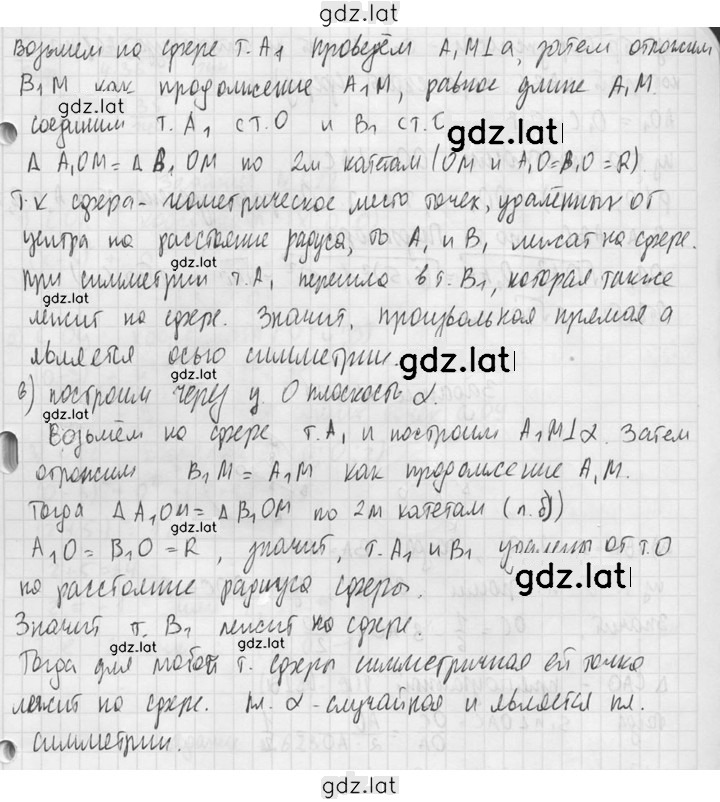 gdz.lat
Возьмем на сфере т. A₁ проведём A₁M⊥a, затем отложим
B₁M как продолжение A₁M, равное длине A₁M.
gdz.lat
соединим т. A₁ с т. O и B₁ с т. C
gdz.lat
Δ A₁OM = Δ B₁OM по 2м катетам (OM и A₁O=B₁O=R).
Т.к сфера - геометрическое место точек, удалённых от
gdz.lat
центра на расстояние радиуса, то A₁ и B₁ лежат на сфере.
gdz.lat
При симметрии т. A₁ перешла в т. B₁, которая также
лежит на сфере. Значит, произвольная прямая a
является осью симметрии.
gdz.lat
gdz.lat
в) построим через ц. O плоскость α.
Возьмём на сфере т. A₁ и построим A₁M⊥α. Затем
отложим B₁M = A₁M как продолжение A₁M.
gdz.lat
Тогда Δ A₁OM = Δ B₁OM по 2м катетам (п. б))
gdz.lat
A₁O = B₁O = R, значит, т. A₁ и B₁ удалены от т. O
gdz.lat
на расстояние радиуса сферы.
Значит т. B₁ лежит на сфере.
gdz.lat
Тогда для любой т. сферы симметричная ей точка
лежит на сфере. Пл. α - случайная и является пл.
gdz.lat
симметрии.
gdz.lat